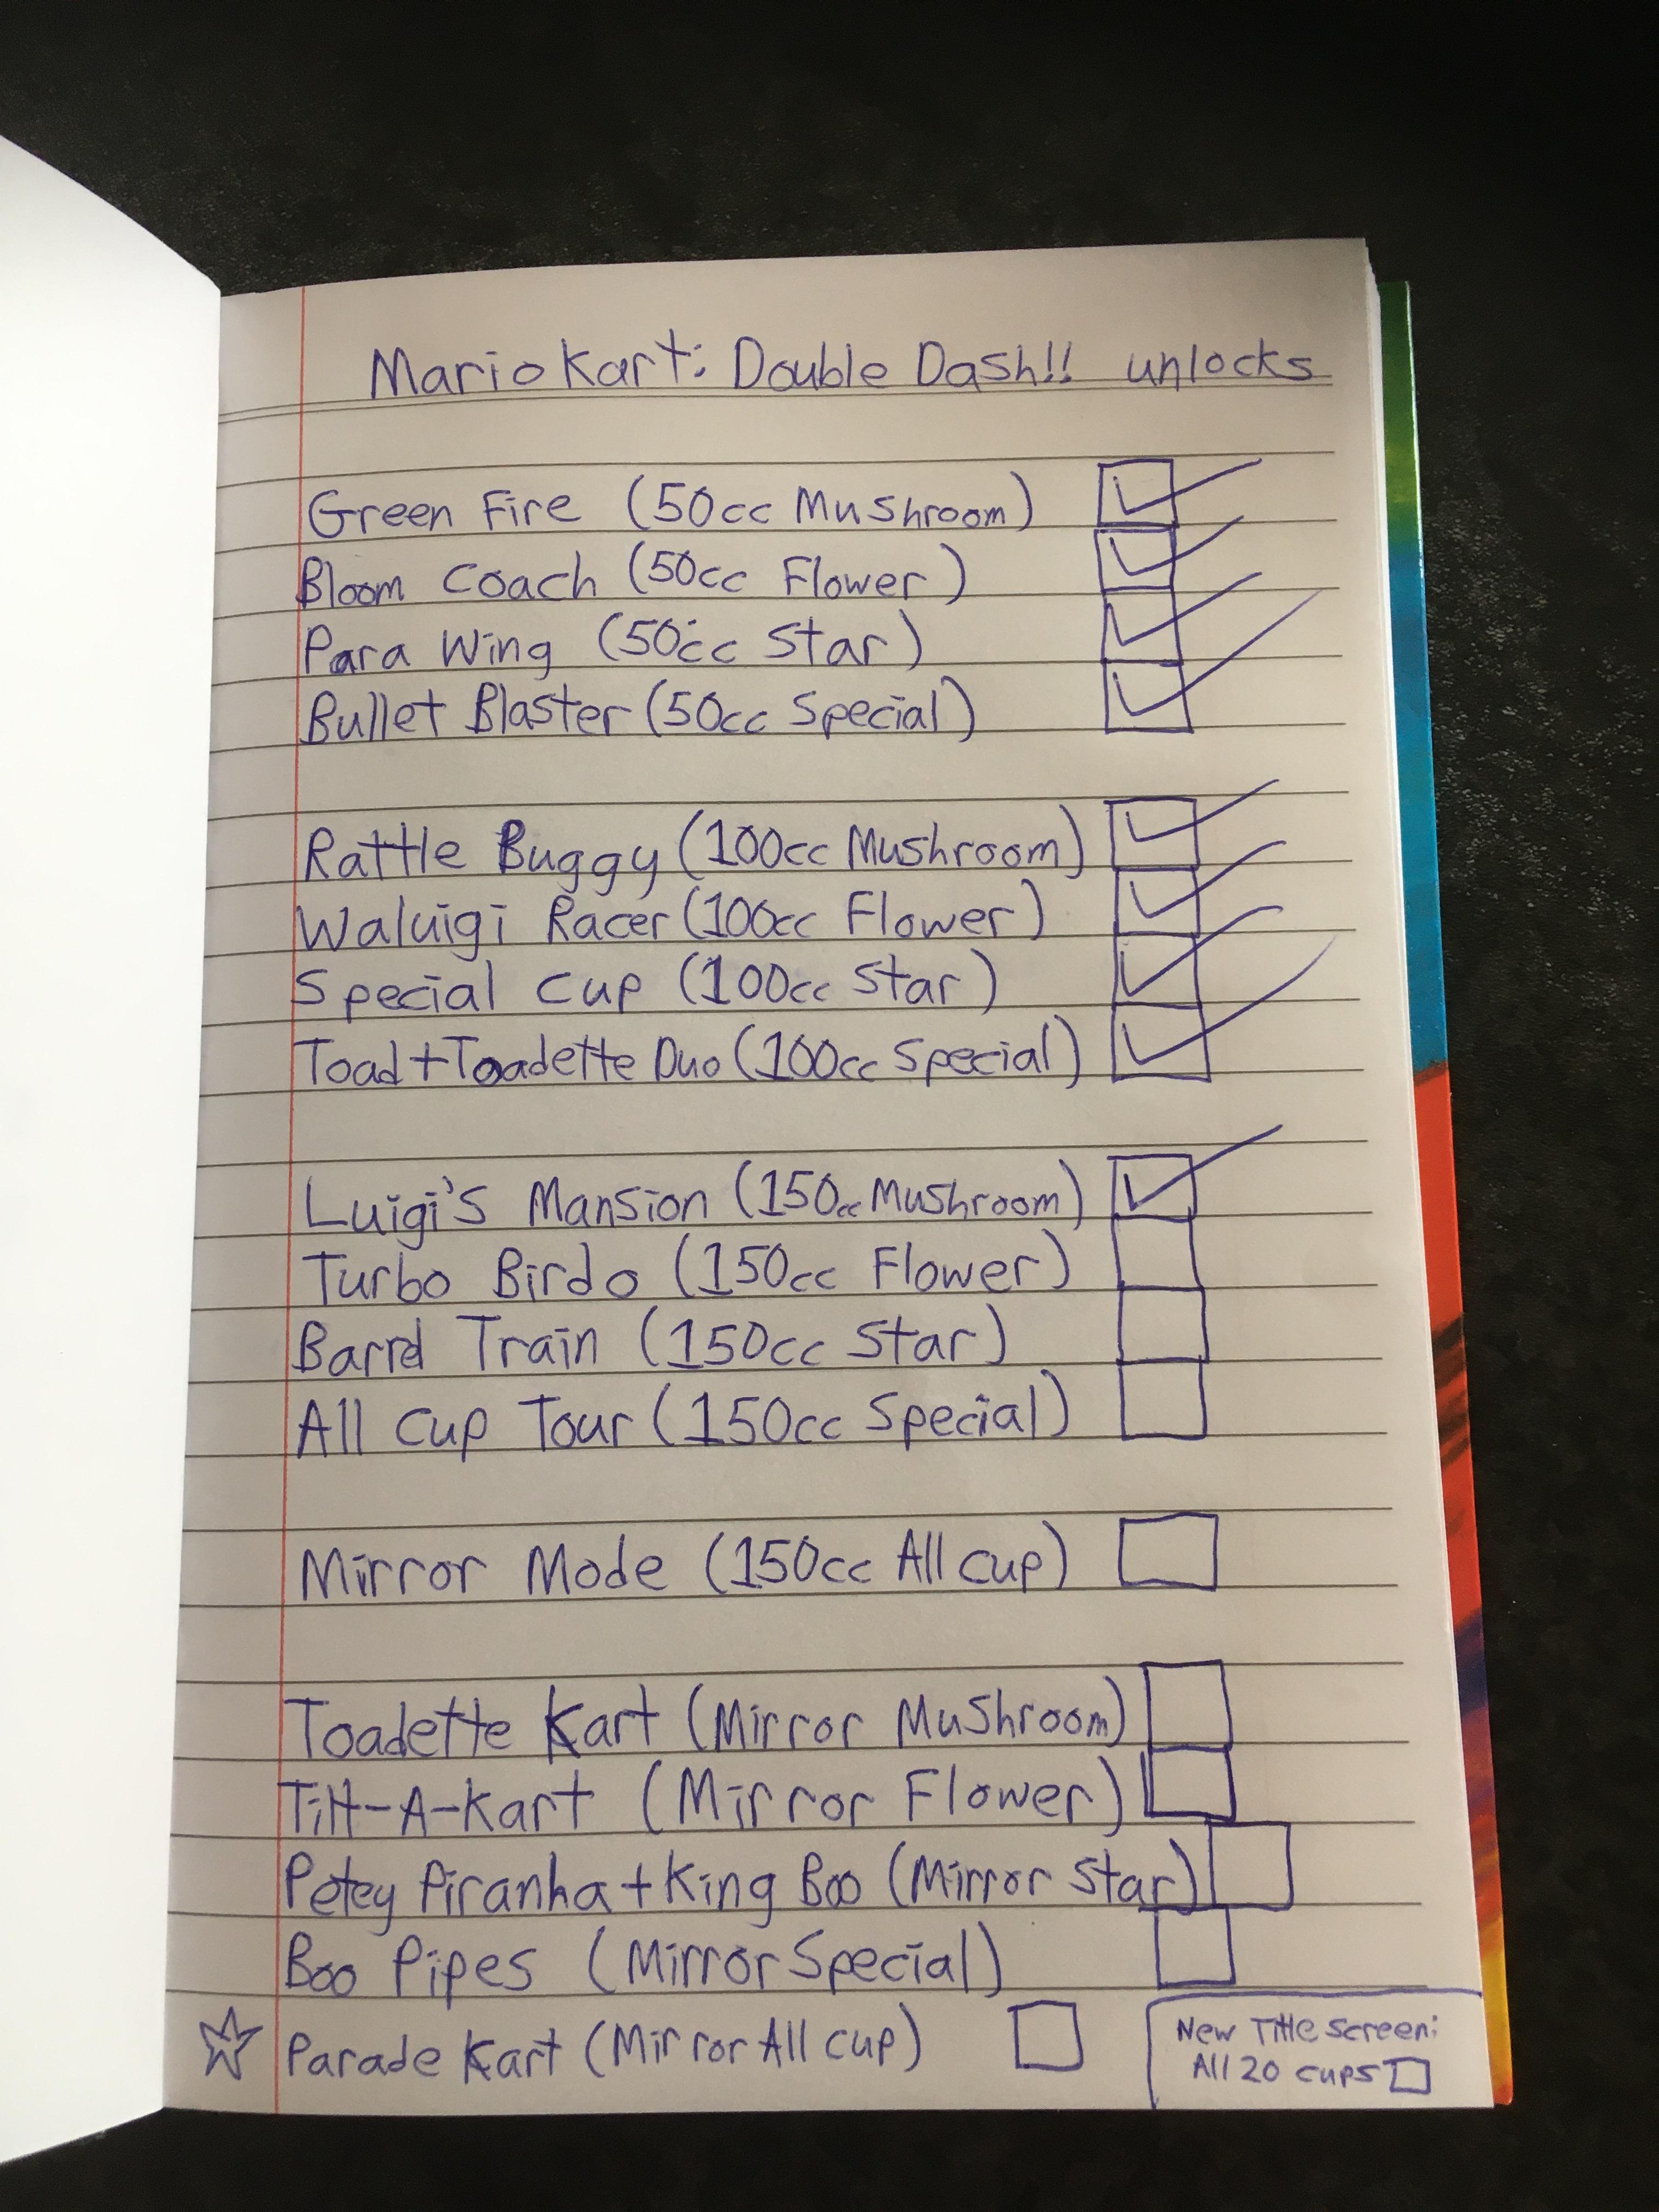 Mario Kart: Double Dash!! unlocks
Green Fire (50cc Mushroom)
Bloom Coach (50cc Flower)
Para Wing (50cc Star)
Bullet Blaster (50cc Special)
Rattle Buggy (100cc Mushroom)
Waluigi Racer (100cc Flower)
Special Cup (100cc Star)
Toad + Toadette Duo (100cc Special)
Luigi's Mansion (150cc Mushroom)
Turbo Birdo (150cc Flower)
Barrel Train (150cc Star)
All Cup Tour (150cc Special)
Mirror Mode (150cc All Cup)
Toadette Kart (Mirror Mushroom)
Tilt-A-Kart (Mirror Flower)
Petey Piranha + King Boo (Mirror Star)
Boo Pipes (Mirror Special)
Parade Kart (Mirror All cup)
New Title Screen:
All 20 cups